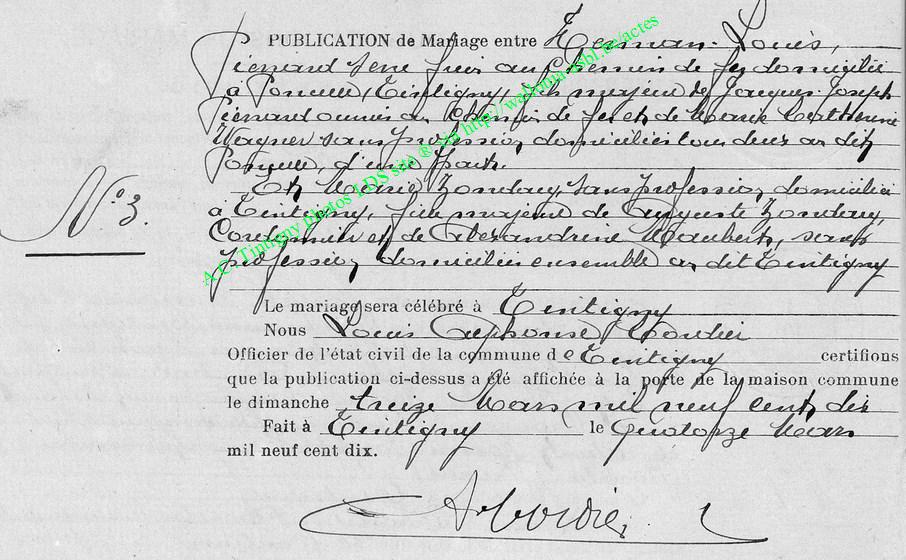 PUBLICATION de Mariage entre Herman Louis,
Pierrard Serre frein au Chemin de fer domicilié
à Poncelle, Tintigny, fils majeur de Jacques Joseph
Pierrard ouvrier au Chemin de fer et de Marie Catherine
Wagner sans profession domiciliés tous deux au dit
Poncelle, d'une part.
Et Maria Zondaux, sans profession, domiciliée
à Tintigny, fille majeure de Auguste Zondaux,
Cordonnier et de Alexandrine Maubert, sans
profession, domiciliés ensemble au dit Tintigny
N° 3.
Le mariage sera célébré à Tintigny
Nous Louis Alphonse
Officier de l'état civil de la commune de Tintigny certifions
que la publication ci-dessus a été affichée à la porte de la maison commune
le dimanche treize Mars mil neuf cent dix
Fait à Tintigny le Quatorze Mars
mil neuf cent dix.
A.C. Tintigny photos LDS site ® via http://wallonia-asbl.be/actes